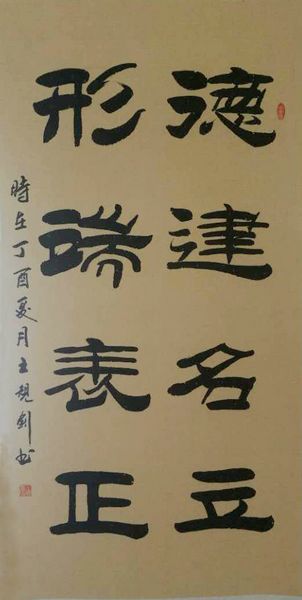 德建名立
形端表正
時在丁酉夏月王親剑书